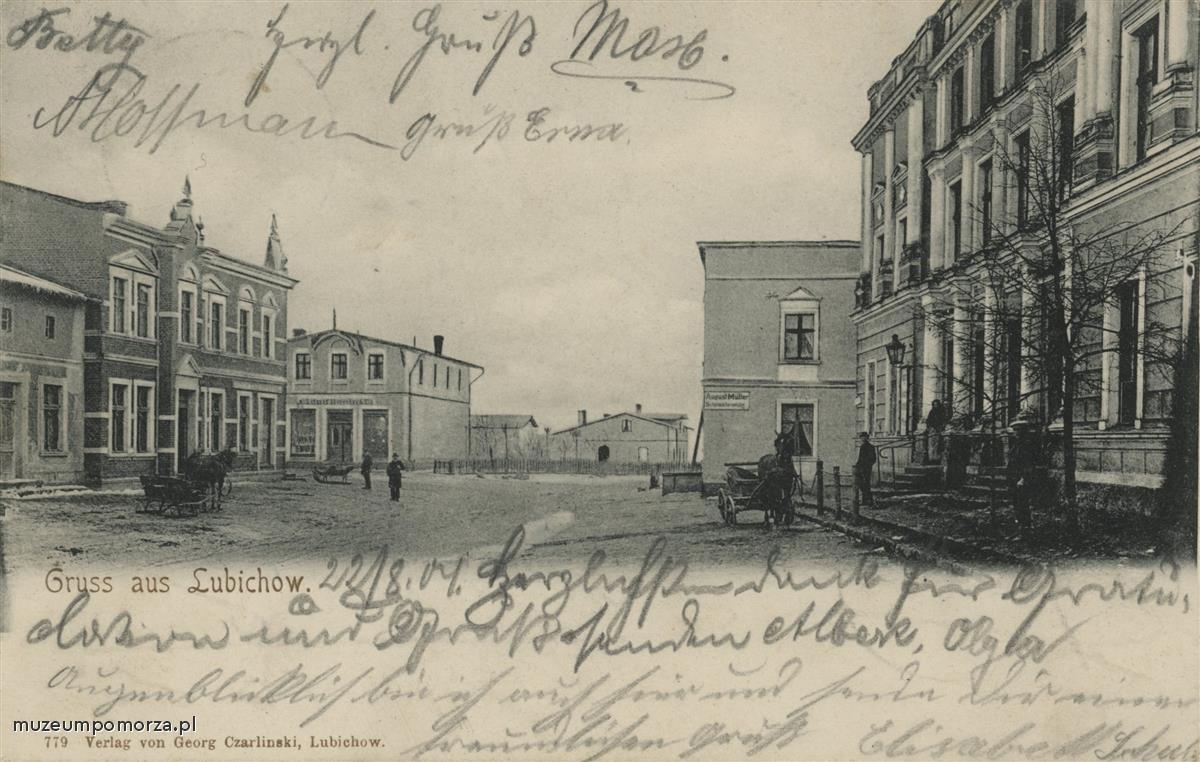 Betty Herzl. Gruß Max.
A Hoffmann Gruß Erna.
August Müller
Gruss aus Lubichow. 22/8.04. Herzlichsten dank für Gratu-
lation und Gruß senden Albert, Olga
Augenblicklich bin ich auch hier und sende Dir einen
freundlichen Gruß Elisabeth
muzeumpomorza.pl
779 Verlag von Georg Czarlinski, Lubichow.